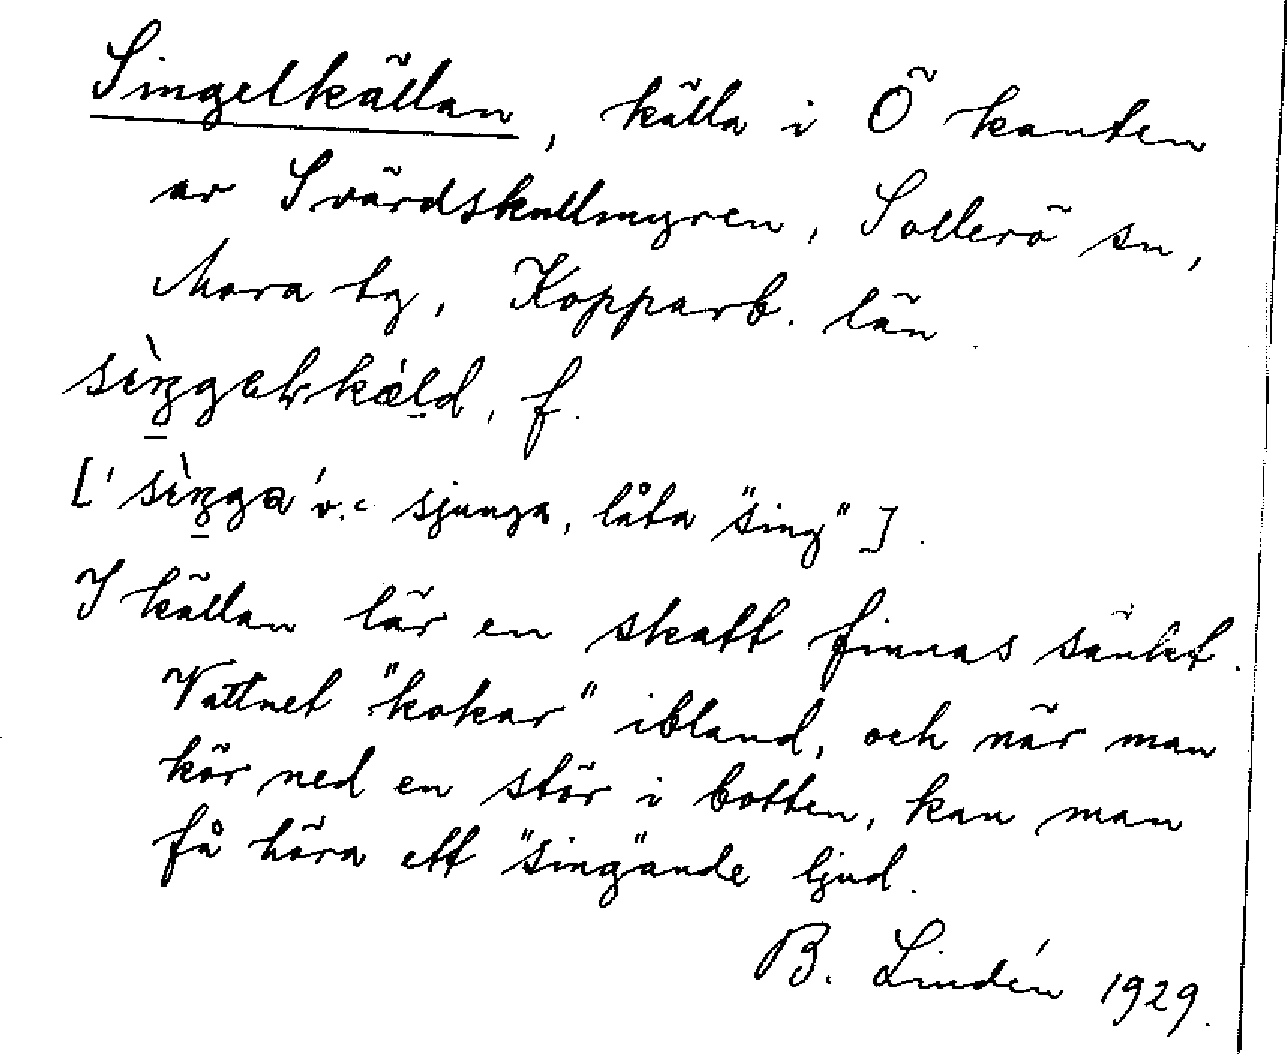 Singelkällan, källa i Ö kanten
av Svärdskullmyren, Sollerö sn,
Mora tg, Kopparb. län.
sìŋgəlkæ̀ld, f.
['sìŋga' v. = sjunga, låta "sing"].
I källan lär en skatt finnas sänkt.
Vattnet "kokar" ibland, och när man
kör ned en stör i botten, kan man
få höra ett "sing"ande ljud.
B. Lindén 1929.